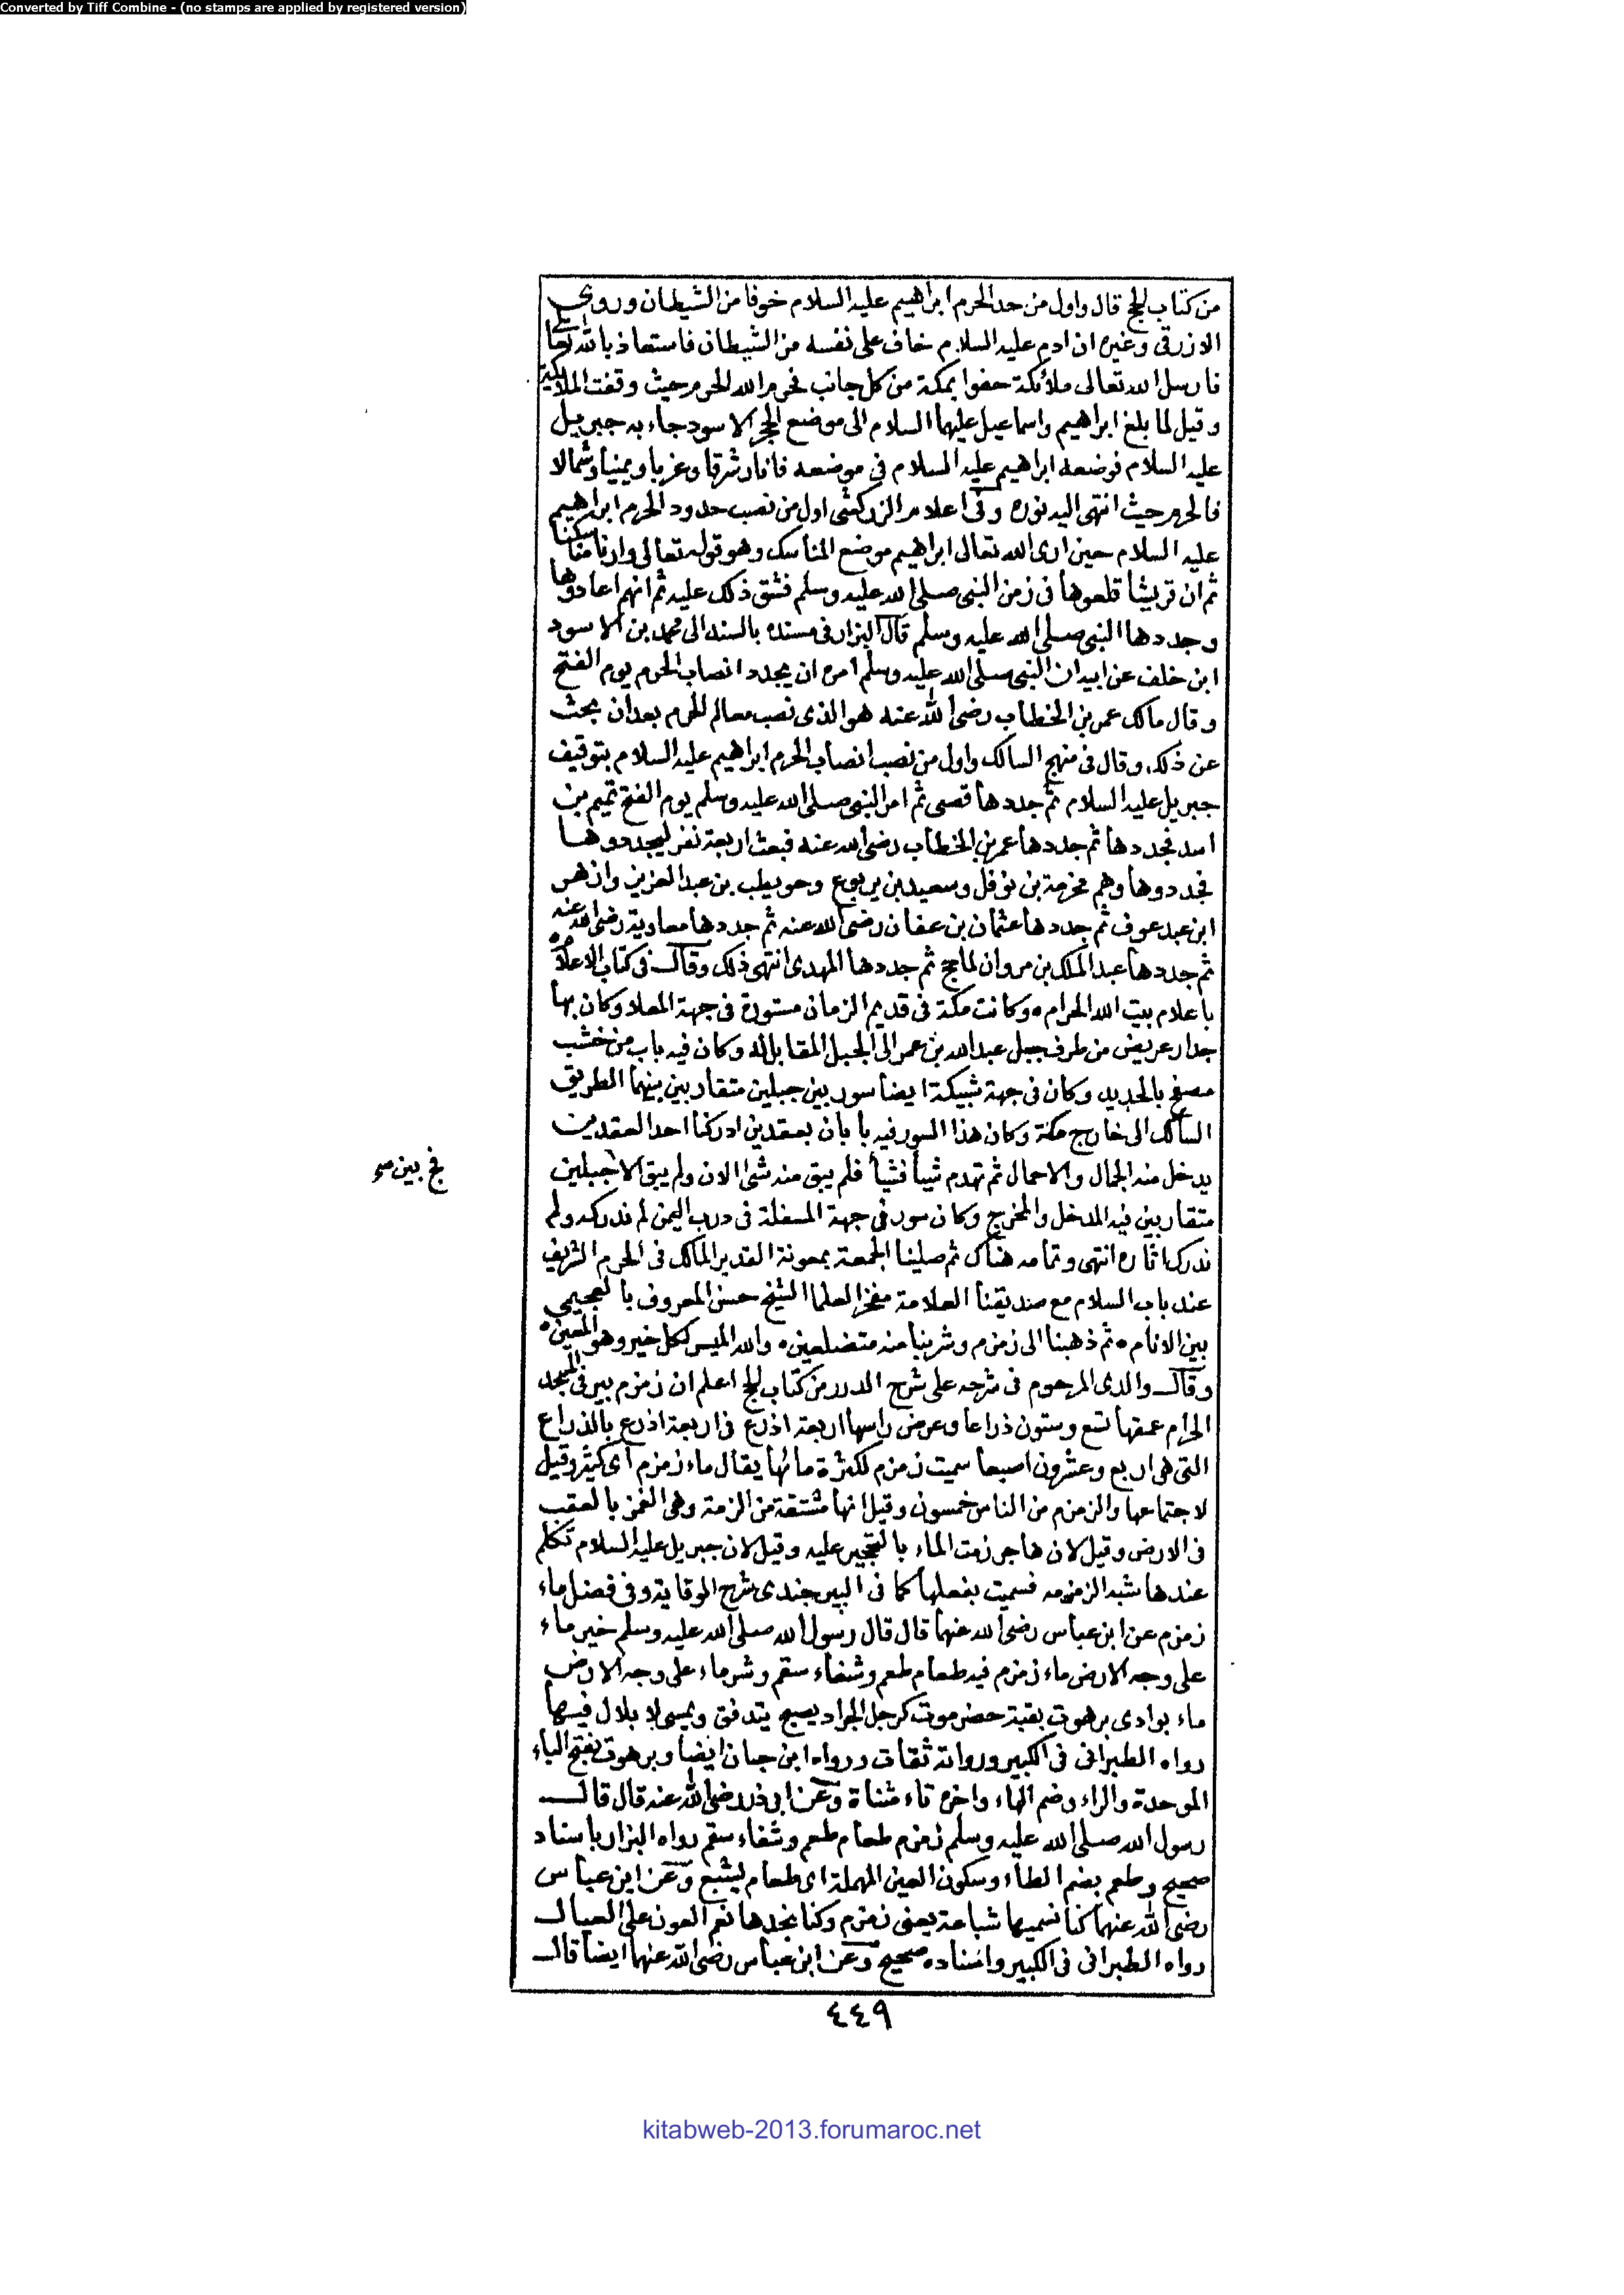 Converted by Tiff Combine - (no stamps are applied by registered version)
من كتاب الحج قال واول من حد الحرم ابراهيم عليه السلام خوفا من الشيطان وروى
الازرقى وغيره ان ادم عليه السلام خاف على نفسه من الشيطان فاستعاذ بالله تعالى
فارسل الله تعالى ملائكة حفوا بمكة من كل جانب فحرم الله الحرم حيث وقفت الملائكة
وقيل لما بلغ ابراهيم واسماعيل عليهما السلام الى موضع الحجر الاسود جاء به جبريل
عليه السلام فوضعه ابراهيم عليه السلام فى موضعه فانار شرقا وغربا ويمينا وشمالا
فالحرم حيث انتهى اليه نوره وفى اعلام الزركشى اول من نصب حدود الحرم ابراهيم
عليه السلام حين ارى الله تعالى ابراهيم موضع المناسك وهو قوله تعالى وارنا مناسكنا
ثم ان قريشا قلعوها فى زمن النبى صلى الله عليه وسلم فشق ذلك عليه ثم انهم اعادوها
وجددها النبى صلى الله عليه وسلم قال البزار فى مسنده بالسند الى محمد بن الاسود
ابن خلف عن ابيه ان النبى صلى الله عليه وسلم امره ان يجدد انصاب الحرم يوم الفتح
وقال مالك عمر بن الخطاب رضى الله عنه هو الذى نصب معالم الحرم بعد ان بحث
عن ذلك وقال فى منهج السالك واول من نصب انصاب الحرم ابراهيم عليه السلام بتوقيف
جبريل عليه السلام ثم جددها قصى ثم امر النبى صلى الله عليه وسلم يوم الفتح تميم بن
اسد فجددها ثم جددها عمر بن الخطاب رضى الله عنه فبعث اربعة نفر ليجددوها
فجددوها وهم مخرمة بن نوفل وسعيد بن يربوع وحويطب بن عبد العزيز وازهر
ابن عبد عوف ثم جددها عثمان بن عفان رضى الله عنه ثم جددها معاوية رضى الله عنه
ثم جددها عبد الملك بن مروان لما حج ثم جددها المهدى انتهى ذلك وقال فى كتاب الاعلام
باعلام بيت الله الحرام وكانت مكة فى قديم الزمان مستورة فى جهة المعلا وكان بها
جدار عريض من طرف جبل عبد الله بن عمر الى الجبل المقابل له وكان فيه باب من خشب
مصفح بالحديد وكان فى جهة شبيكة ايضا سور بين جبلين متقاربين بينهما الطريق
السالك الى خارج مكة وكان هذا السور فيه بابان بعقدين ادركنا احد العقدين
يدخل منه الجمال والاحمال ثم تهدم شيأ فشيأ فلم يبق منه شى الان ولم يبق الا جبلين
فج بين صح
متقاربين فيه المدخل والمخرج وكان سور فى جهة المسفلة فى درب اليمن لم ندركه ولم
ندرك اثاره انتهى وتمامه هناك ثم صلينا الجمعة بمعونة القدير المالك فى الحرم الشريف
عند باب السلام مع صديقنا العلامة مفخر العلما الشيخ حسن المعروف بالعجيمى
بين الانام ثم ذهبنا الى زمزم وشربنا منه متضلعين والله الميسر لكل خير وهو المعين
وقال والدى المرحوم فى شرحه على شرح الدرر من كتاب الحج اعلم ان زمزم بير فى المسجد
الحرام عمقها تسع وستون ذراعا وعرض راسها اربعة اذرع فى اربعة اذرع بالذراع
التى هى اربع وعشرون اصبعا سميت زمزم لكثرة مائها يقال ماء زمزم اى كثير وقيل
لاجتماعها والزمزم من الناس خمسون وقيل انها مشتقة من الزمة وهى الغمز بالعقب
فى الارض وقيل لان هاجر زمت الماء بالتحجير عليه وقيل لان جبريل عليه السلام تكلم
عندها شبه الزمزمه فسميت بفعلها كما فى البير جندى شرح الوقاية وفى فضل ماء
زمزم عن ابن عباس رضى الله عنهما قال قال رسول الله صلى الله عليه وسلم خير ماء
على وجه الارض ماء زمزم فيه طعام طعم وشفاء سقم وشر ماء على وجه الارض
ماء بوادى برهوت بقبة حضرموت كرجل الجراد يصبح يتدفق ويمسى لا بلال فيها
رواه الطبرانى فى الكبير ورواته ثقات ورواه ابن حبان ايضا وبرهوت بفتح الباء
الموحدة والراء وضم الهاء واخره تاء مثناة وعن ابى ذر رضى الله عنه قال قال
رسول الله صلى الله عليه وسلم زمزم طعام طعم وشفاء سقم رواه البزار باسناد
صحيح وطعم بضم الطاء وسكون العين المهملة اى طعام يشبع وعن ابن عباس
رضى الله عنهما كنا نسميها شباعة يعنى زمزم وكنا نجدها نعم العون على العيال
رواه الطبرانى فى الكبير واسناده صحيح وعن ابن عباس رضى الله عنهما ايضا قال
٤٤٩
kitabweb-2013.forumaroc.net